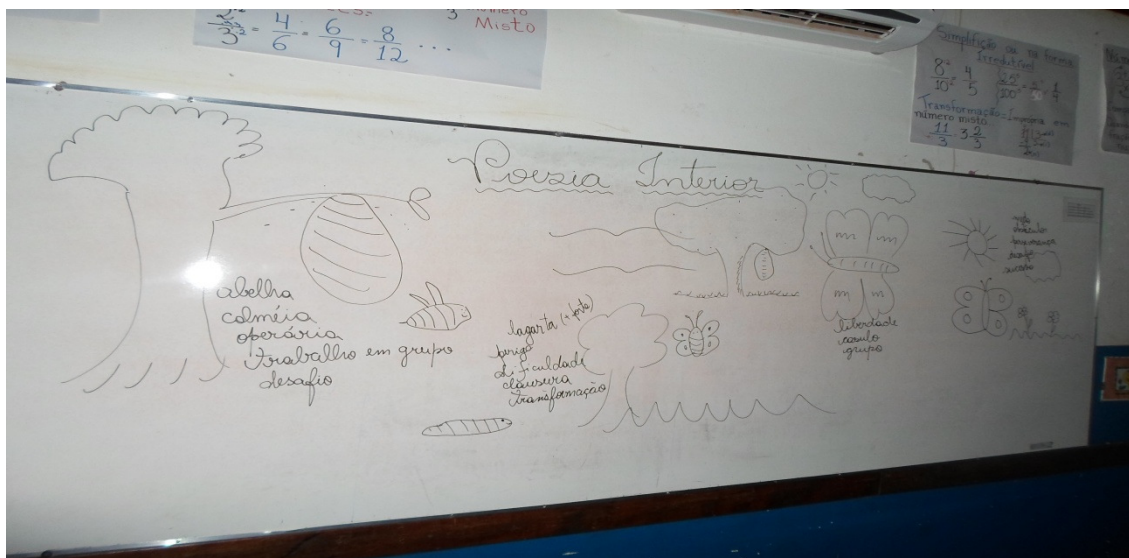 2/3 = 4/6 = 6/9 = 8/12 ...
Misto
Simplificação ou na forma
Irredutível
8/10 = 4/5
Transformação
número misto
11/3 = 3 2/3
Poesia Interior
abelha
colméia
operária
trabalho em grupo
desafio
lagarta (+ forte)
perigo
dificuldade
clausura
transformação
liberdade
casulo
grupo
sucesso